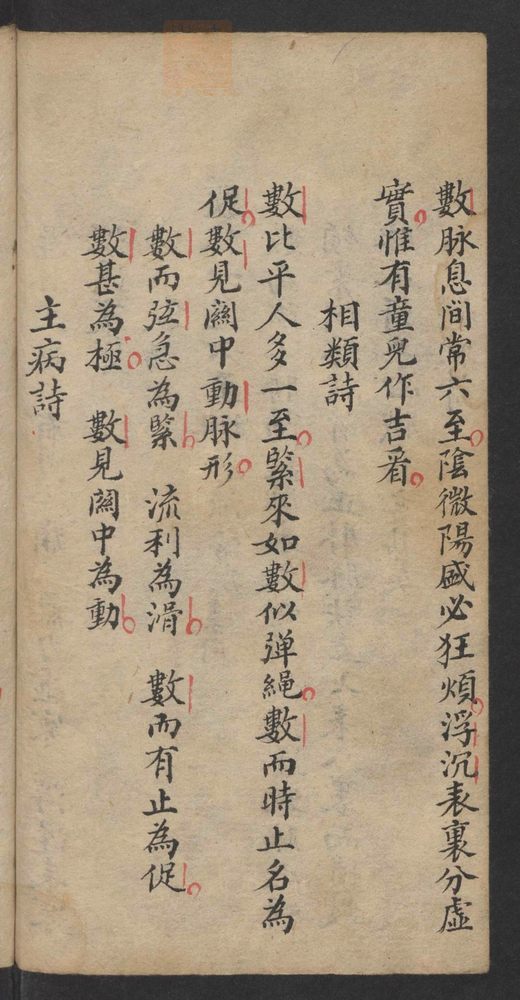 數脉息间常六至陰微陽盛必狂煩浮沉表裏分虚
實惟有童兒作吉看
相類詩
數比平人多一至緊來如數似弹繩數而時止名為
促數見關中動脉形
數而弦急為緊　流利為滑　數而有止為促
數甚為極　數見關中為動
主病詩